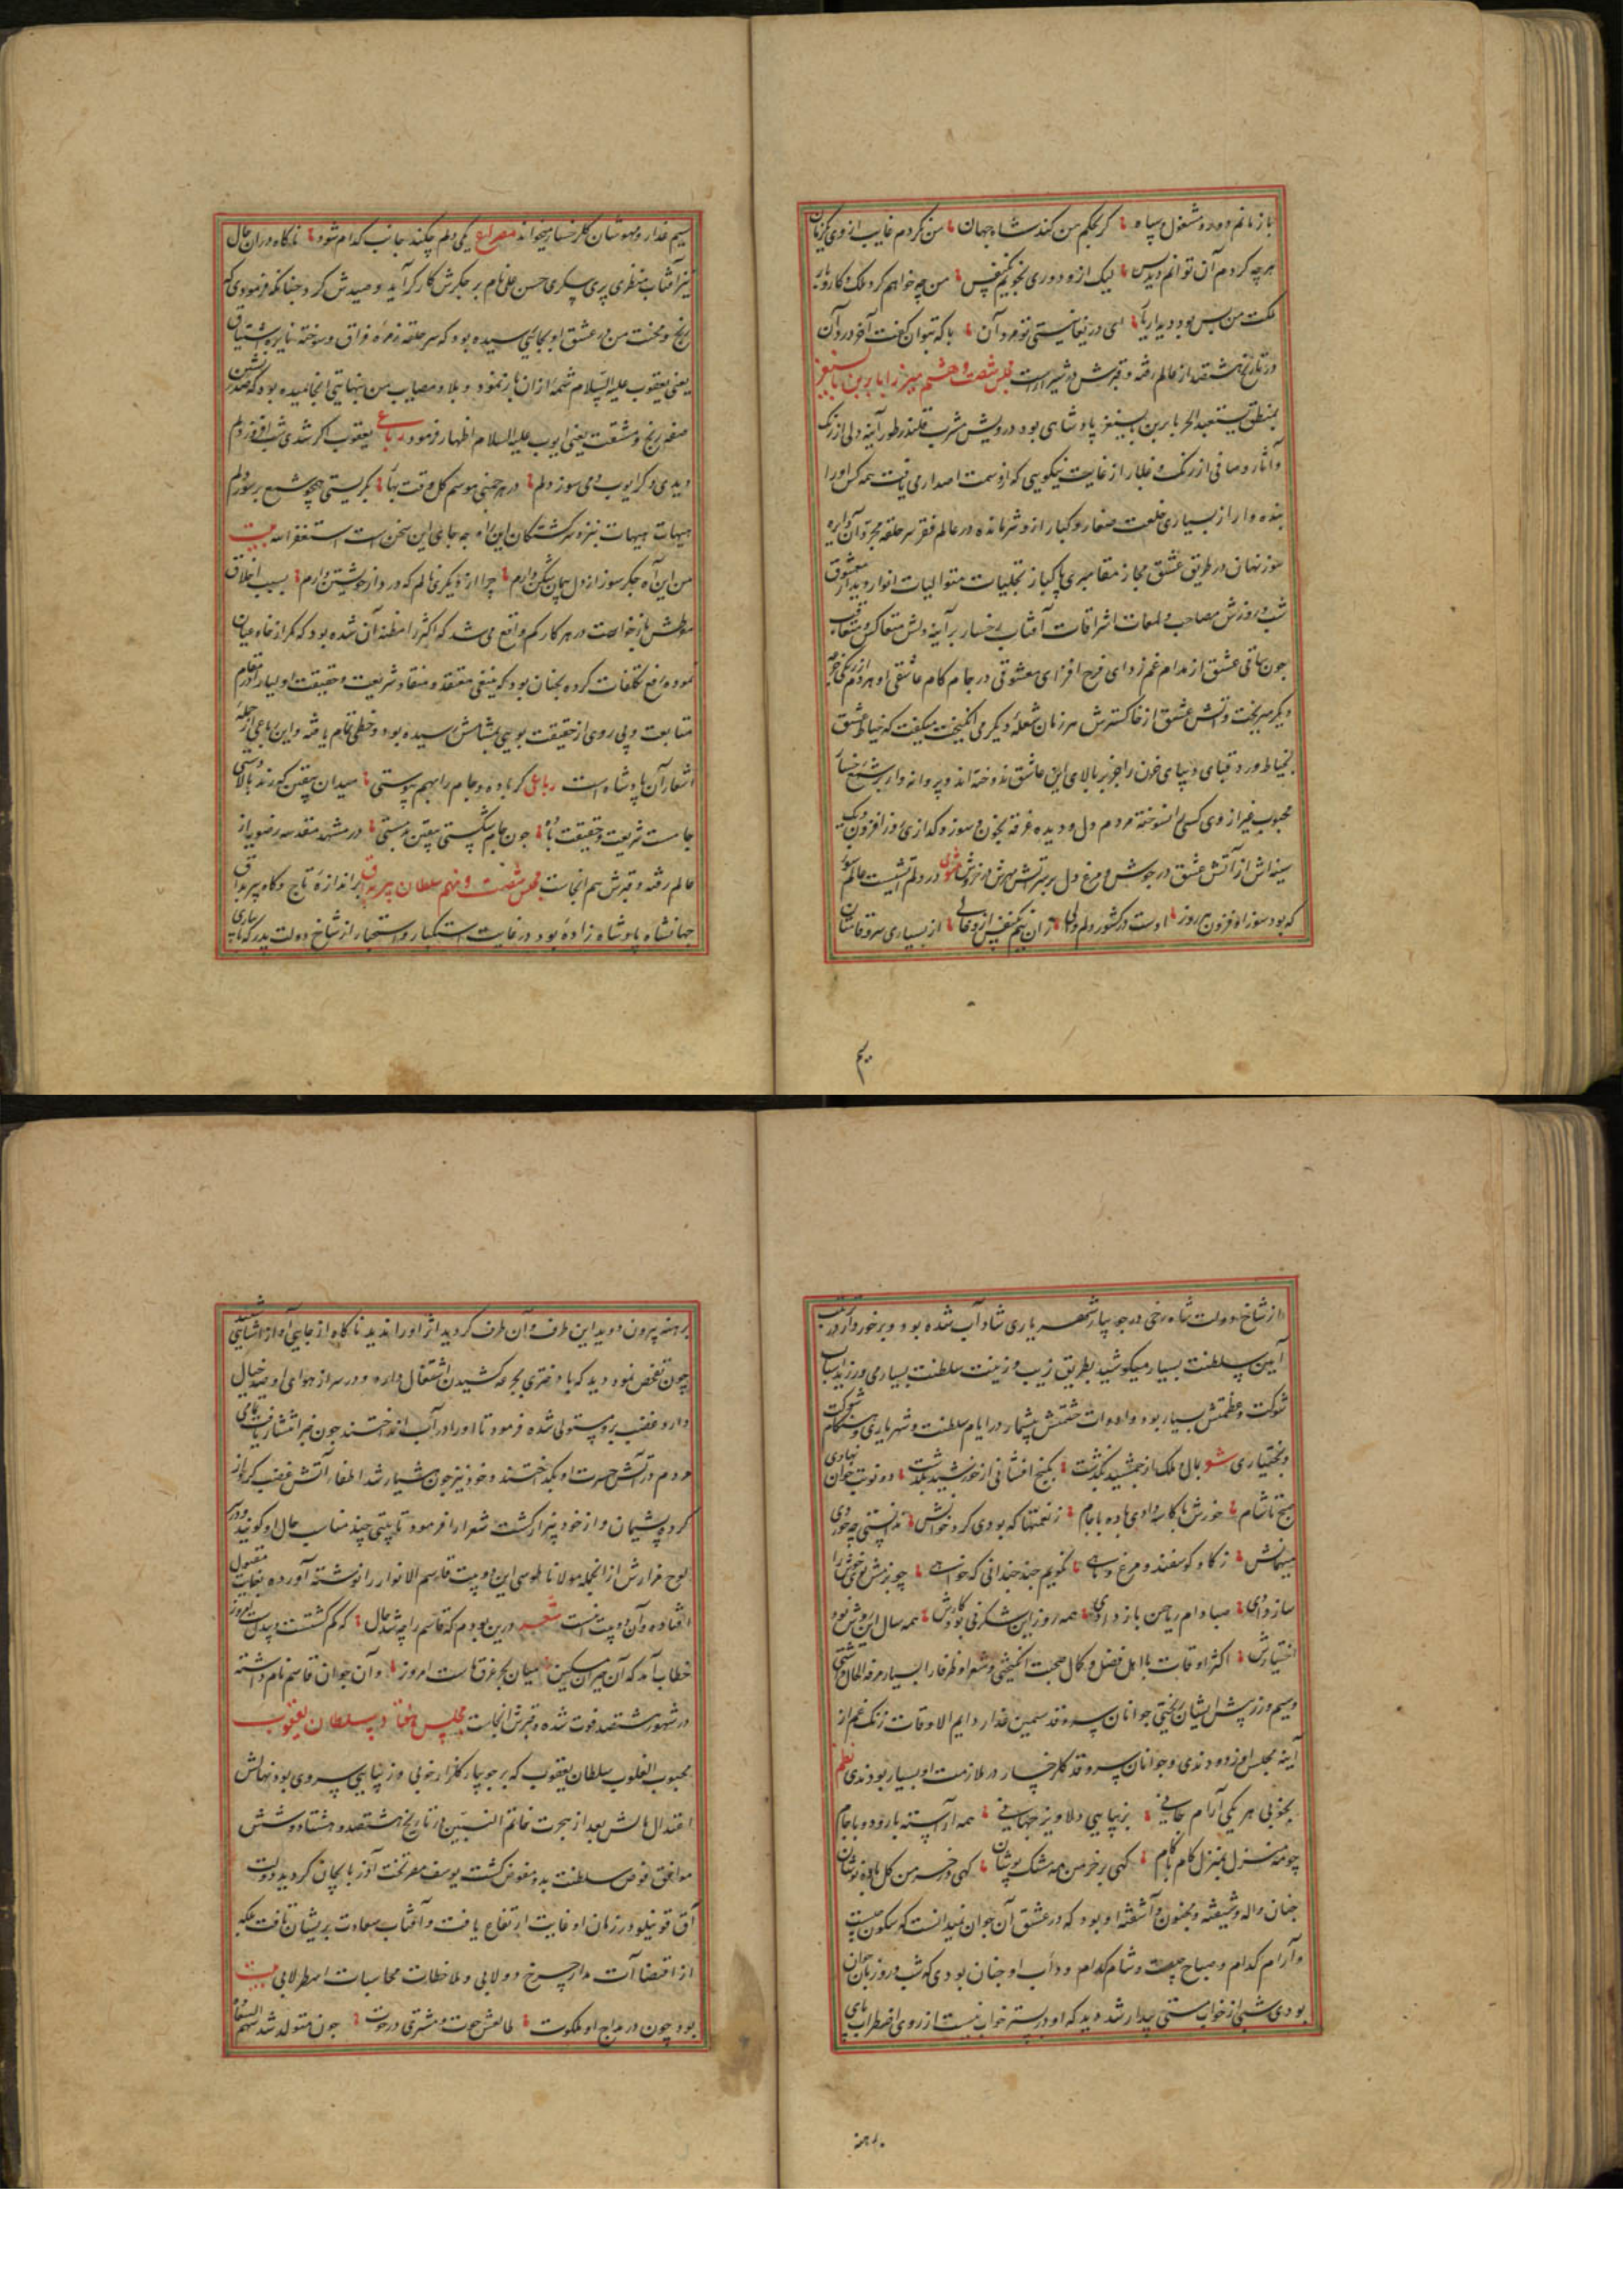 باز مانم وجود مشغول سپاه گر بحکم من کند شاه جهان من نگردم غایب از وی یکزمان
هرچه کردم آن توانم دیدنش لیک ازو دوری نجویم یکنفس من چه خواهم کرد ملک و کاروبار
ملکت من بس بود دیدار یار ای دریغا نیستی تو مرد آن با که بتوان گفت آخر درد آن
در تاریخ هشتصد از عالم رفته و قبرش در شیراز است مجلس شصت و هشتم میرزا بابر بن بایسنغر
بمنطق یستعبد الحر بابر بن بایسنغر پادشاهی بود درویش مشرب قلندر طور آینه دلی از رنگ
و آثار و صافی از زنگ و غبار از غایت نیکویی که ازو سمت اصداری یافت همه کس او را
بنده وار از بسیاری خلعت صغار و کبار ازو شرمانده در عالم فقر سرحلقه مجردان دایره
سوز نهان در طریق عشق مجاز مقامری پاکباز تجلیات متوالیات انوار دیدار معشوق
شب و روزش مصاحب و لمعات اشراقات آفتاب رخسار بر آینه دلش متعاکس و متعاقب
چون ساقی عشق از مدام غم زدای فرح افزای معشوقی در جام کام عاشقی او هر دم از رنگی
دیگر میریخت و آتش عشق از خاکسترش هر زمان شعله دیگر می انگیخت میگفت که خیاط عشق
بخیاط درد قبای دیبای خون را جز بر بالای این عاشق ندوخته اند و پروانه وار بر شمع رخسار
محبوب غیر از وی کسی نسوخته مردم دل و دیده غرقه بخون و سوز و گدازی روز افزون دیگ
سینه اش از آتش عشق در جوش و مرغ دل بر سر آتش مهرش در خروش مثنوی در دلم آتشیست عالم سوز
که بود سوز او فزون هر روز اوست در کشور دلم والی زان نیم یکنفس ازو خالی از بسیاری سرو قامتان
سیم عذار و مهوشان گلرخسار میخواند مصراع یکی دلم چکند جانب کدام شود ناگاه در آن حال
تیز آفتاب منظری پری پیکری حسن علی نام بر جگرش کارگر آید و صیدش کرد چنانکه فرمودی که
رنج و محنت من در عشق او بجایی رسیده بود که سر حلقه زمره فراق و سوخته نایره اشتیاق
یعنی یعقوب علیه السلام شمه از ان باز نمود و بلا و مصایب من بنهایتی انجامیده بود که صدرنشین
صفه رنج و مشقت یعنی ایوب علیه السلام اظهار فرمود رباعی یعقوب اگر شدی شب افروز دلم
دیدی و گر ایوب دمی سوز دلم در هر چمنی موسم گل وقت بهار بگریستی چو شمع بر سوز دلم
هیهات هیهات نیز و سرگشتگان این راه چه جای این سخن است استغفرالله بیت
من این آه جگرسوز از دل پیمان شکن دارم چرا از دیگری نالم که درد از خویشتن دارم بسبب اخلاق
موطنش بازخواست در هر کار کم واقع می شد که اکثر را مظنه آن شده بود که مگر از خاص و عیان
نموده رفع تکلفات کرده بچنان بود که منفی معتقد و منقاد شریعت و حقیقت اولیا در مقام
متابعت و پی روی از حقیقت بویی بمشامش رسیده بود و حظی تمام یافته و این رباعی از جمله
اشعار آن پادشاه است رباعی گر باده و جام را بهم پیوستی میدان بیقین که رند بالادستی
جامست شریعت و حقیقت باده چون جام شکستی بیقین بدمستی در مشهد مقدسه رضویه از
عالم رفته و قبرش هم انجاست مجلس شصت و نهم سلطان پیربداق برازنده تاج و گاه پیربداق
جهانشاه پادشاه زاده بود در غایت استکبار و استجبار از شاخ دولت پدر کامکاری
از شاخ دولت شاه رخی در جویبار شهریاری شاداب شده بود و برخوردار در ترتیب
آیین سلطنت بسیار میکوشید بطریق زیب و زینت سلطنت بسیار می ورزید اسباب
شوکت و عظمتش بسیار بود و ادوات حشمتش بیشمار در ایام سلطنت و شهریاری و هنگام شوکت
و بختیاری شعر بمال و ملک از جمشید بگذشت بگنج افشانی از خورشید بگذشت دو نوبت خوان نهادی
صبح تا شام خورش با کاسه دادی باده با جام ز نعمتها که بودی گرد خوانش ندانستی چه خوردی
میهمانش ز گاو و گوسفند و مرغ و ماهی نگویم چند چندانی که خواهی چو بزمش بوی خوش را
ساز دادی صبا دام ریاحین باز دادی همه روز این شگرفی بود کارش همه سال این روش بود
اختیارش اکثر اوقات با اهل فضل و کمال صحبت انگیختی و شعرا و ظرفا را بسیار مرفه الحال داشتی
و سیم و زر پیش ایشان ریختی جوانان سرو قد سیمین عذار دایم الاوقات زنگ غم از
آینه مجلس او زدودندی و جوانان سرو قد گلرخسار در ملازمت او بسیار بودندی نظم
بخوبی هر یکی آرام جانی بزیبایی دلاویز جهانی همه آراسته با رود و با جام
چو مه منزل بمنزل گام با گام گهی بر خرمن مه مشک پوشان گهی در خرمن گل باده نوشان
چنان واله و شیفته و مجنون و آشفته او بود که در عشق آن جوان نمیدانست که سکون چیست
و آرام کدام و صباح چیست و شام کدام و دأب او چنان بودی که شب و روز با آن جوان
بودی شبی از خواب مستی بیدار شد دید که او در بستر خواب نیست از روی اضطراب پای
برهنه بیرون دوید این طرف و آن طرف گردید اثر او را ندید ناگاه از جایی آواز آشنایی شنید
چون تفحص نمود دید که با دختری بجرعه کشیدن اشتغال دارد و در سر از هوای او صد خیال
دارد غضب برو مستولی شده فرمود تا او را در آب انداختند چون خبر انتشار یافت تمامی
مردم در آتش حسرت او بگداختند و خود نیز چون هشیار شد اطفاء آتش غضب کرده از
کرده پشیمان و از خود بیزار گشت شعرا را فرمود تا بیتی چند مناسب حال او گویند و در
لوح مزارش از انجمله مولانا طوسی این دو بیت قاسم الانوار را نوشته آورده بغایت مقبول
افتاده و آن دو بیت اینست شعر درین بودم که قاسم را چه شد حال که گم گشتست و پیدا نیست امروز
خطاب آمد که آن حیران مسکین میان بحر غرق ماست امروز و آن جوان قاسم نام داشته
در شهور هشتصد فوت شده و قبرش انجاست مجلس هفتادم سلطان یعقوب
محبوب القلوب سلطان یعقوب که بر جویبار گلزار خوبی و زیبایی سروی بود نهالش
اعتدال مالش بعد از هجرت خاتم النبیین در تاریخ هشتصد و هشتاد و شش
موافق فوض سلطنت بدو مفوض گشت یوسف مصر تخت آذربایجان گردید دولت
آق قوینلو در زمان او غایت ارتفاع یافت و آفتاب سعادت بریشان تافت بلکه
از اقتضاآت مدار چرخ دولابی و ملاحظات محاسبات اصطرلابی بیت
بود چون در مدارج او ملکوت طالعش حوت و مشتری در حوت چون متولد شد سهم السعاده